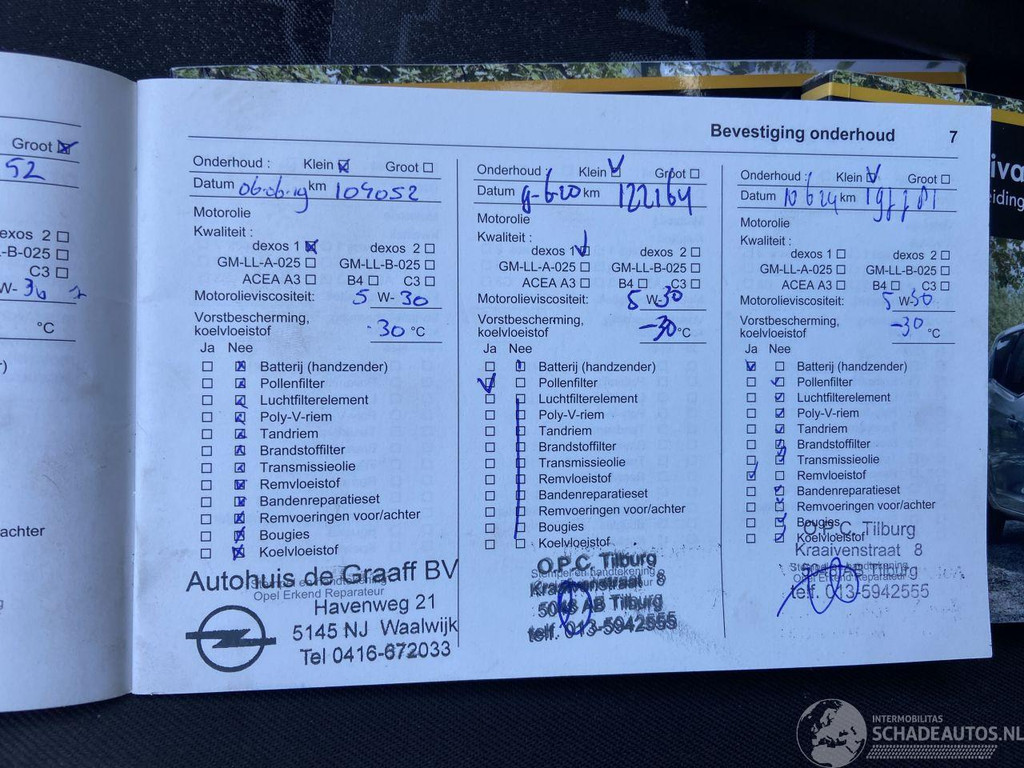 Groot
52
dexos 2
LL-B-025
C3
W-30
°C
achter
Bevestiging onderhoud 7
Onderhoud : Klein Groot
Datum 06-06-19 km 109052
Motorolie
Kwaliteit :
dexos 1 dexos 2
GM-LL-A-025 GM-LL-B-025
ACEA A3 B4 C3
Motorolieviscositeit: 5 W- 30
Vorstbescherming,
koelvloeistof -30 °C
Ja Nee
Batterij (handzender)
Pollenfilter
Luchtfilterelement
Poly-V-riem
Tandriem
Brandstoffilter
Transmissieolie
Remvloeistof
Bandenreparatieset
Remvoeringen voor/achter
Bougies
Koelvloeistof
Autohuis de Graaff BV
Opel Erkend Reparateur
Havenweg 21
5145 NJ Waalwijk
Tel 0416-672033
Onderhoud : Klein Groot
Datum 9-6-20 km 122164
Motorolie
Kwaliteit :
dexos 1 dexos 2
GM-LL-A-025 GM-LL-B-025
ACEA A3 B4 C3
Motorolieviscositeit: 5 W-30
Vorstbescherming,
koelvloeistof -30 °C
Ja Nee
Batterij (handzender)
Pollenfilter
Luchtfilterelement
Poly-V-riem
Tandriem
Brandstoffilter
Transmissieolie
Remvloeistof
Bandenreparatieset
Remvoeringen voor/achter
Bougies
Koelvloeistof
O.P.C. Tilburg
Stempel en handtekening
Kraaivenstraat 8
5048 AB Tilburg
telf. 013-5942555
Onderhoud : Klein Groot
Datum 10 6 24 km
Motorolie
Kwaliteit :
dexos 1 dexos 2
GM-LL-A-025 GM-LL-B-025
ACEA A3 B4 C3
Motorolieviscositeit: 5 W-30
Vorstbescherming,
koelvloeistof -30 °C
Ja Nee
Batterij (handzender)
Pollenfilter
Luchtfilterelement
Poly-V-riem
Tandriem
Brandstoffilter
Transmissieolie
Remvloeistof
Bandenreparatieset
Remvoeringen voor/achter
Bougies
Koelvloeistof
O.P.C. Tilburg
Kraaivenstraat 8
Opel Erkend Reparateur
AB Tilburg
telf. 013-5942555
iva
eiding
INTERMOBILITAS
SCHADEAUTOS.NL